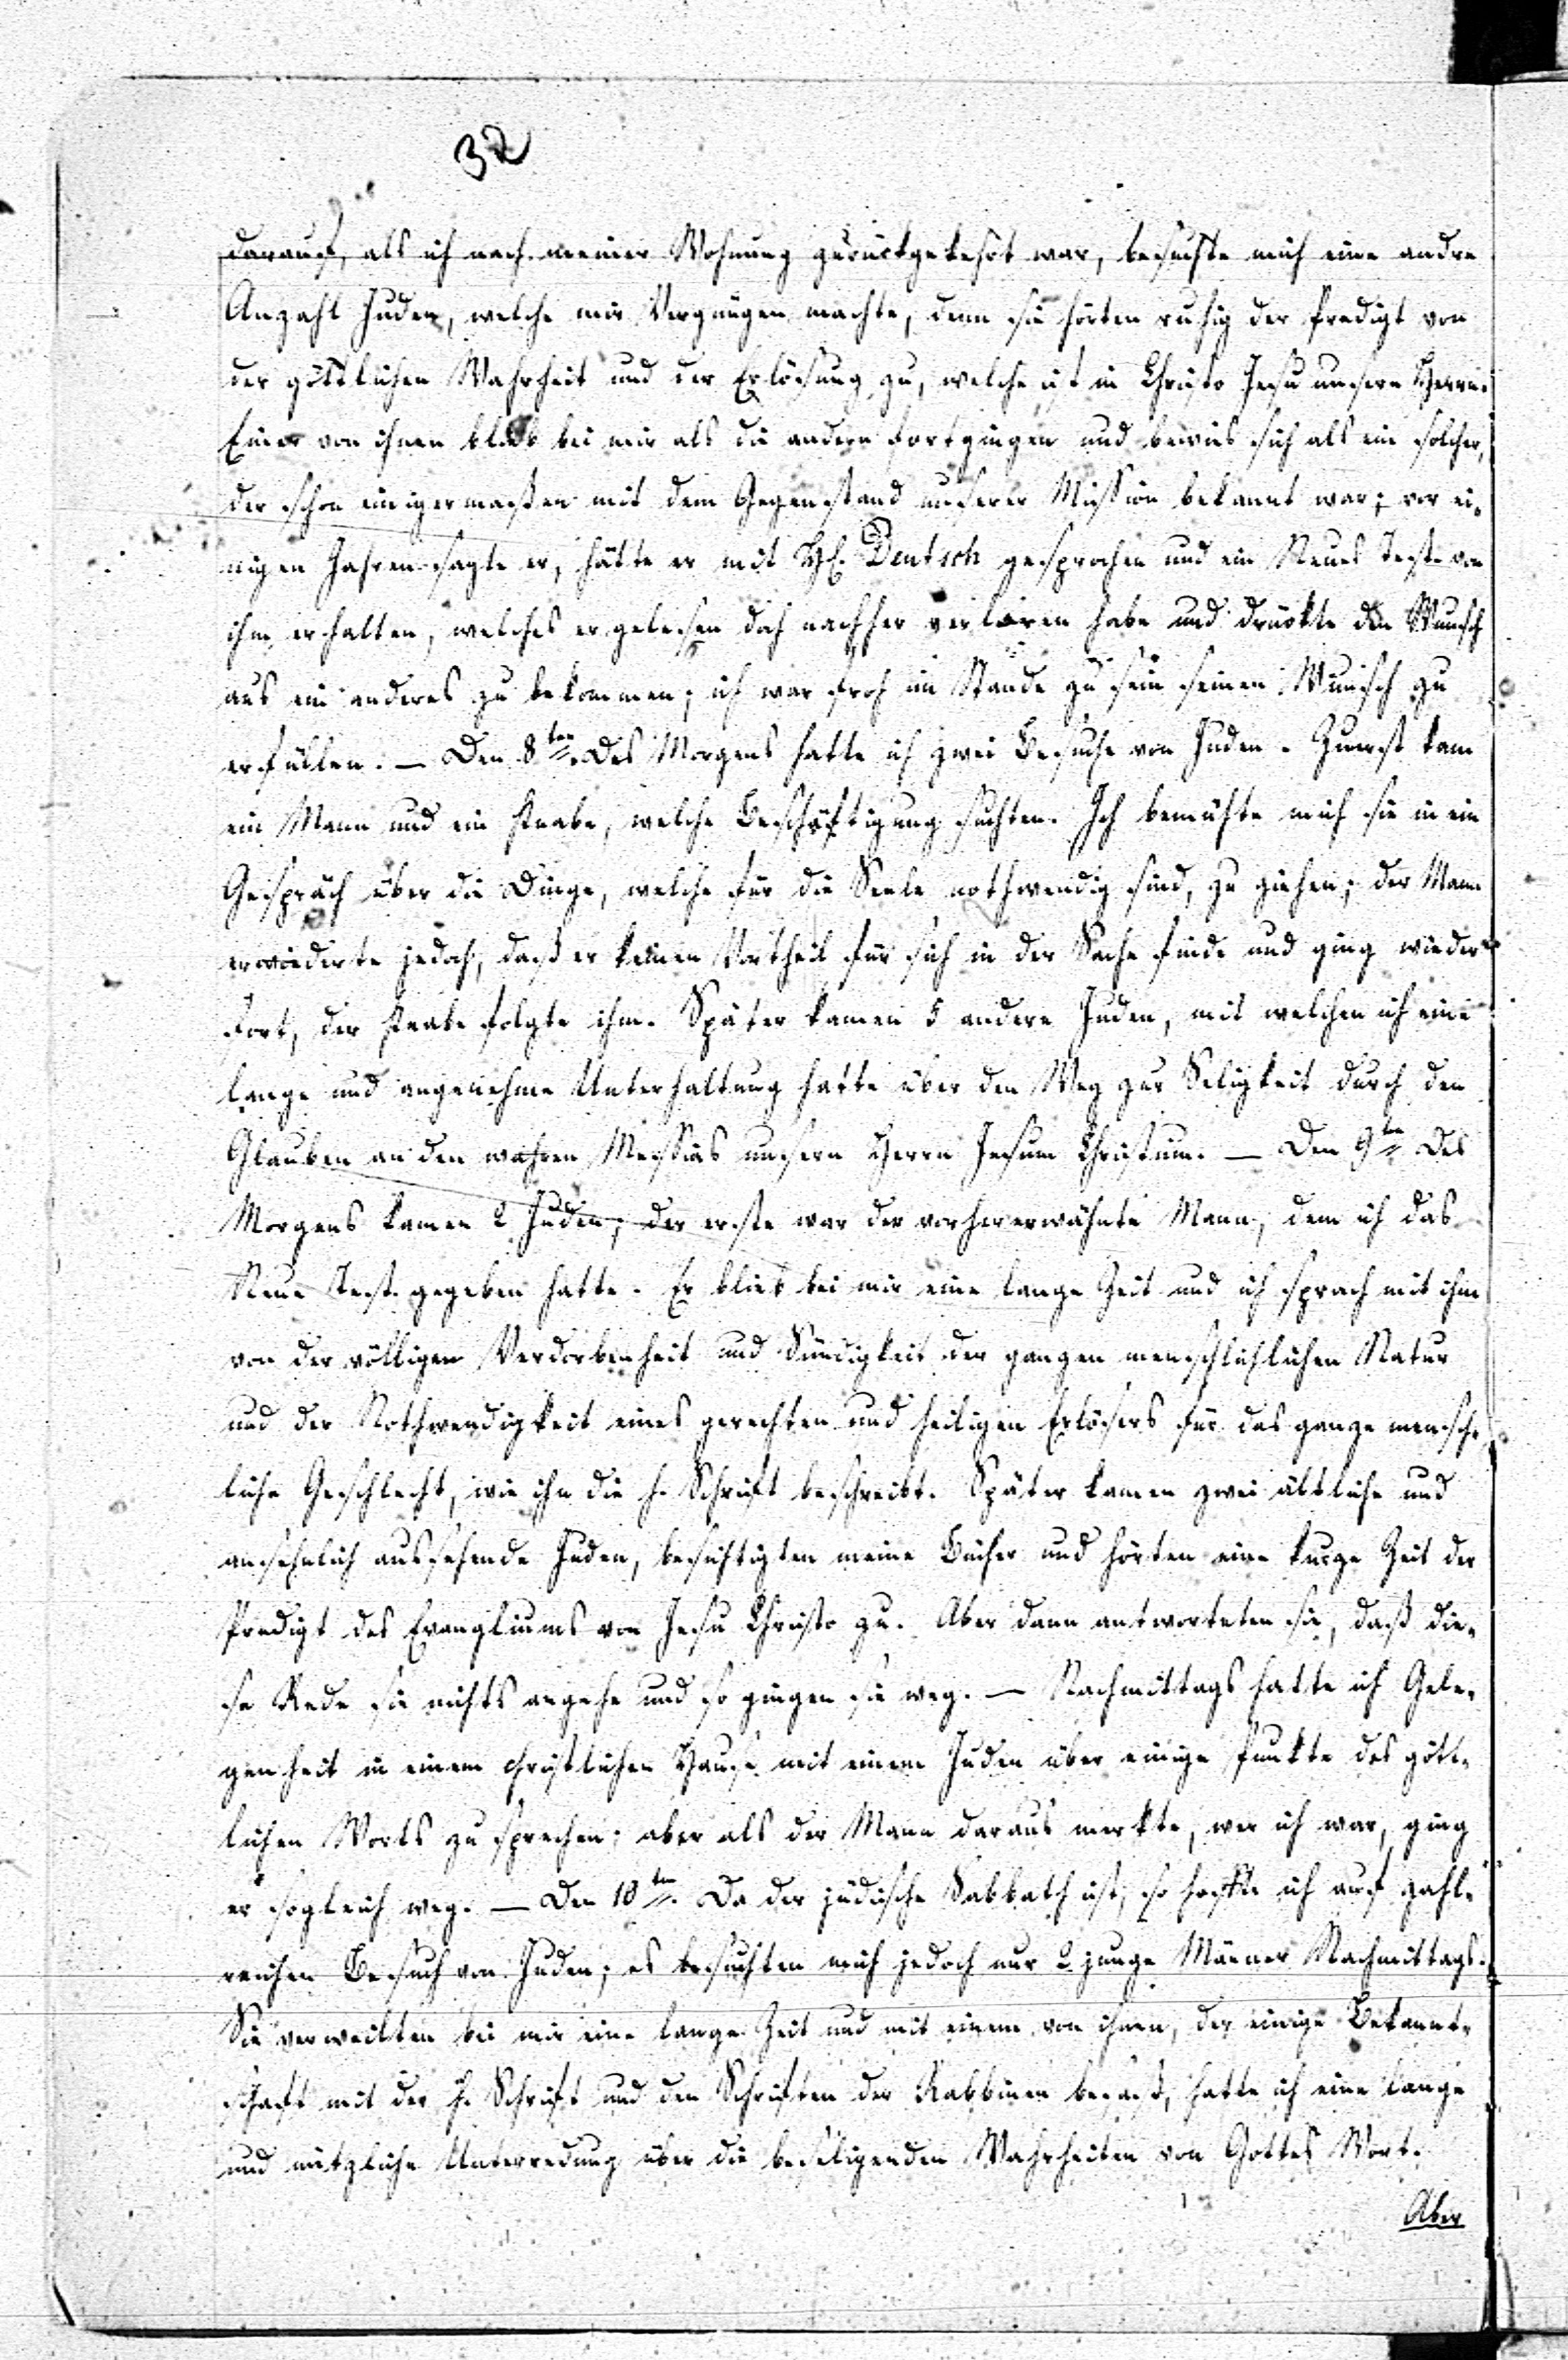 32
darauf, als ich nach meiner Wohnung zurückgekehrt war, besuchte mich eine andre
Anzahl Juden, welche mir Vergnügen machte, denn sie hörten ruhig der Predigt von
der göttlichen Wahrheit und der Erlösung zu, welche ist in Christo Jesu unserm Herrn.
Einer von ihnen blieb bei mir als die andern fortgingen und bewies sich als ein solcher,
der schon einigermaßen mit dem Gegenstand unserer Mission bekannt war; vor ei-
nigen Jahren sagte er, hätte er mit H. Deutsch gesprochen und ein Neues Test. von
ihm erhalten, welches er gelesen doch nachher verloren habe und drückte den Wunsch
aus ein anderes zu bekommen; ich war froh im Stande zu sein seinen Wunsch zu
erfüllen. — Den 8ten. Des Morgens hatte ich zwei Besuche von Juden. Zuerst kam
ein Mann und ein Knabe, welche Beschäftigung suchten. Ich bemühte mich sie in ein
Gespräch über die Dinge, welche für die Seele nothwendig sind, zu ziehen; der Mann
erwiederte jedoch, daß er keinen Vortheil für sich in der Sache finde und ging wieder
fort, der Knabe folgte ihm. Später kamen 5 andere Juden, mit welchen ich eine
lange und angenehme Unterhaltung hatte über den Weg zur Seligkeit durch den
Glauben an den wahren Messias unsern Herrn Jesum Christum. — Den 9ten Des
Morgens kamen 2 Juden; der erste war der vorhererwähnte Mann, dem ich das
Neue Test. gegeben hatte. Er blieb bei mir eine lange Zeit und ich sprach mit ihm
von der völligen Verdorbenheit und Sündigkeit der ganzen menschlichlichen Natur
und der Nothwendigkeit eines gerechten und heiligen Erlösers für das ganze mensch-
liche Geschlecht, wie ihn die h. Schrift beschreibt. Später kamen zwei ältliche und
ansehnlich aussehende Juden, besichtigten meine Bücher und hörten eine kurze Zeit der
Predigt des Evangliums von Jesu Christo zu. Aber dann antworteten sie, daß die-
se Rede sie nichts angehe und so gingen sie weg. — Nachmittags hatte ich Gele-
genheit in einem christlichen Hause mit einem Juden über einige Punkte des gött-
lichen Worts zu sprechen; aber als der Mann daraus merkte, wer ich war, ging
er sogleich weg. — Den 10ten. Da der jüdische Sabbath ist, so hoffte ich auf zahl-
reichen Besuch von Juden; es besuchten mich jedoch nur 2 junge Männer Nachmittags.
Sie verweilten bei mir eine lange Zeit und mit einem von ihnen, der einige Bekannt-
schaft mit der h. Schrift und den Schriften der Rabbinen besaß, hatte ich eine lange
und nützliche Unterredung über die beseligenden Wahrheiten von Gottes Wort.
Aber